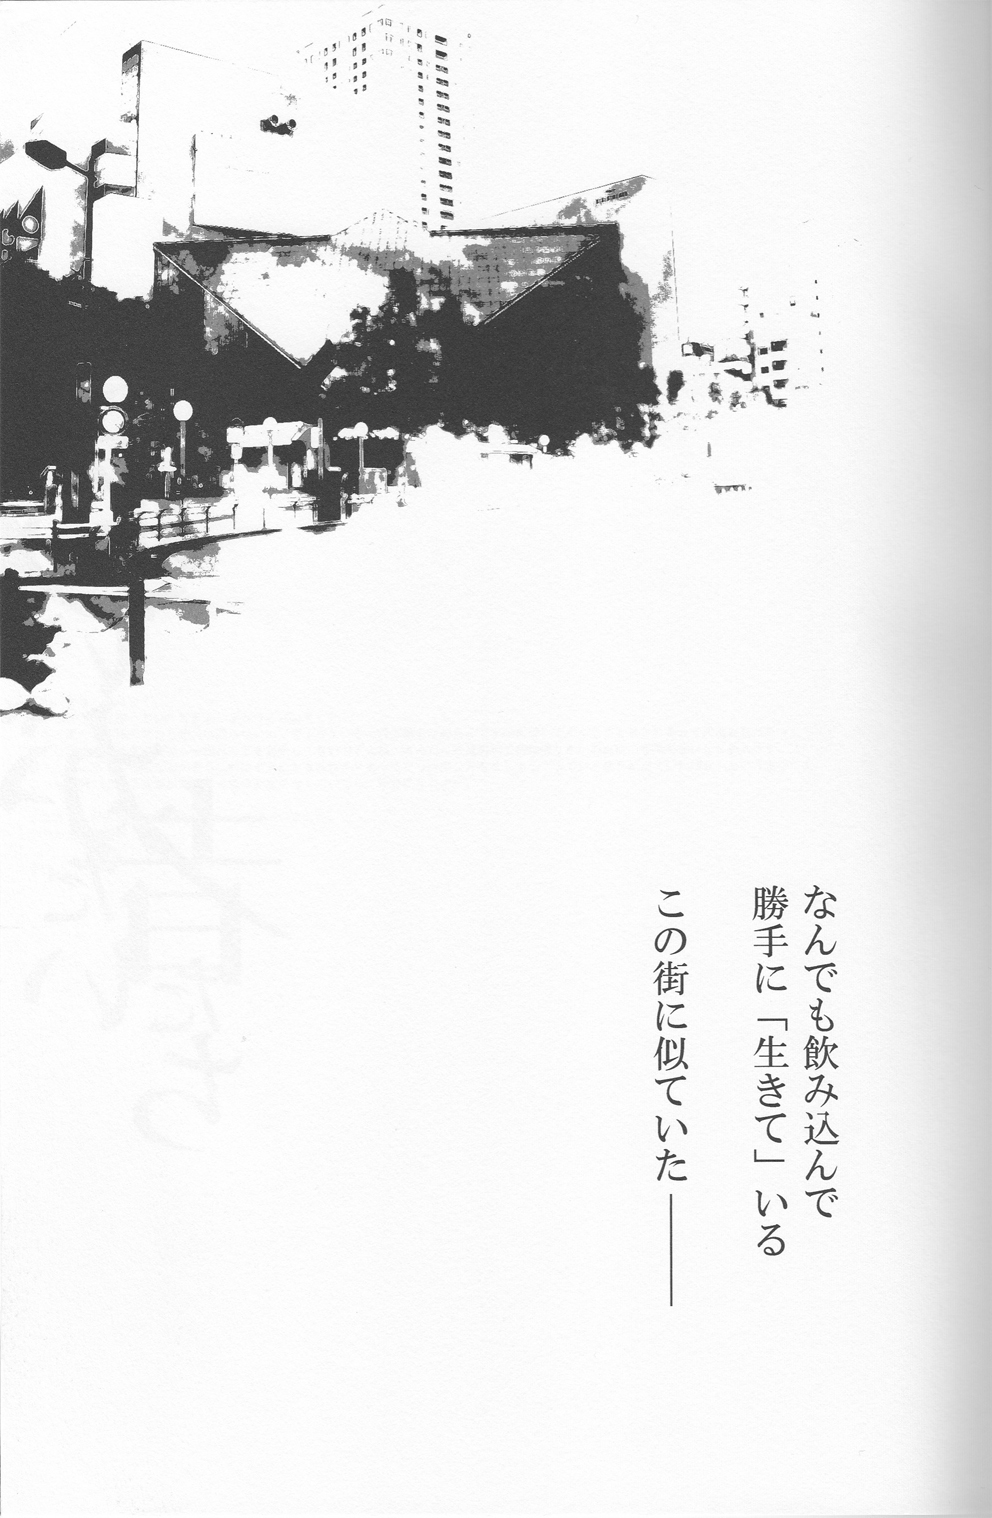 なんでも飲み込んで
勝手に「生きて」いる
この街に似ていた───